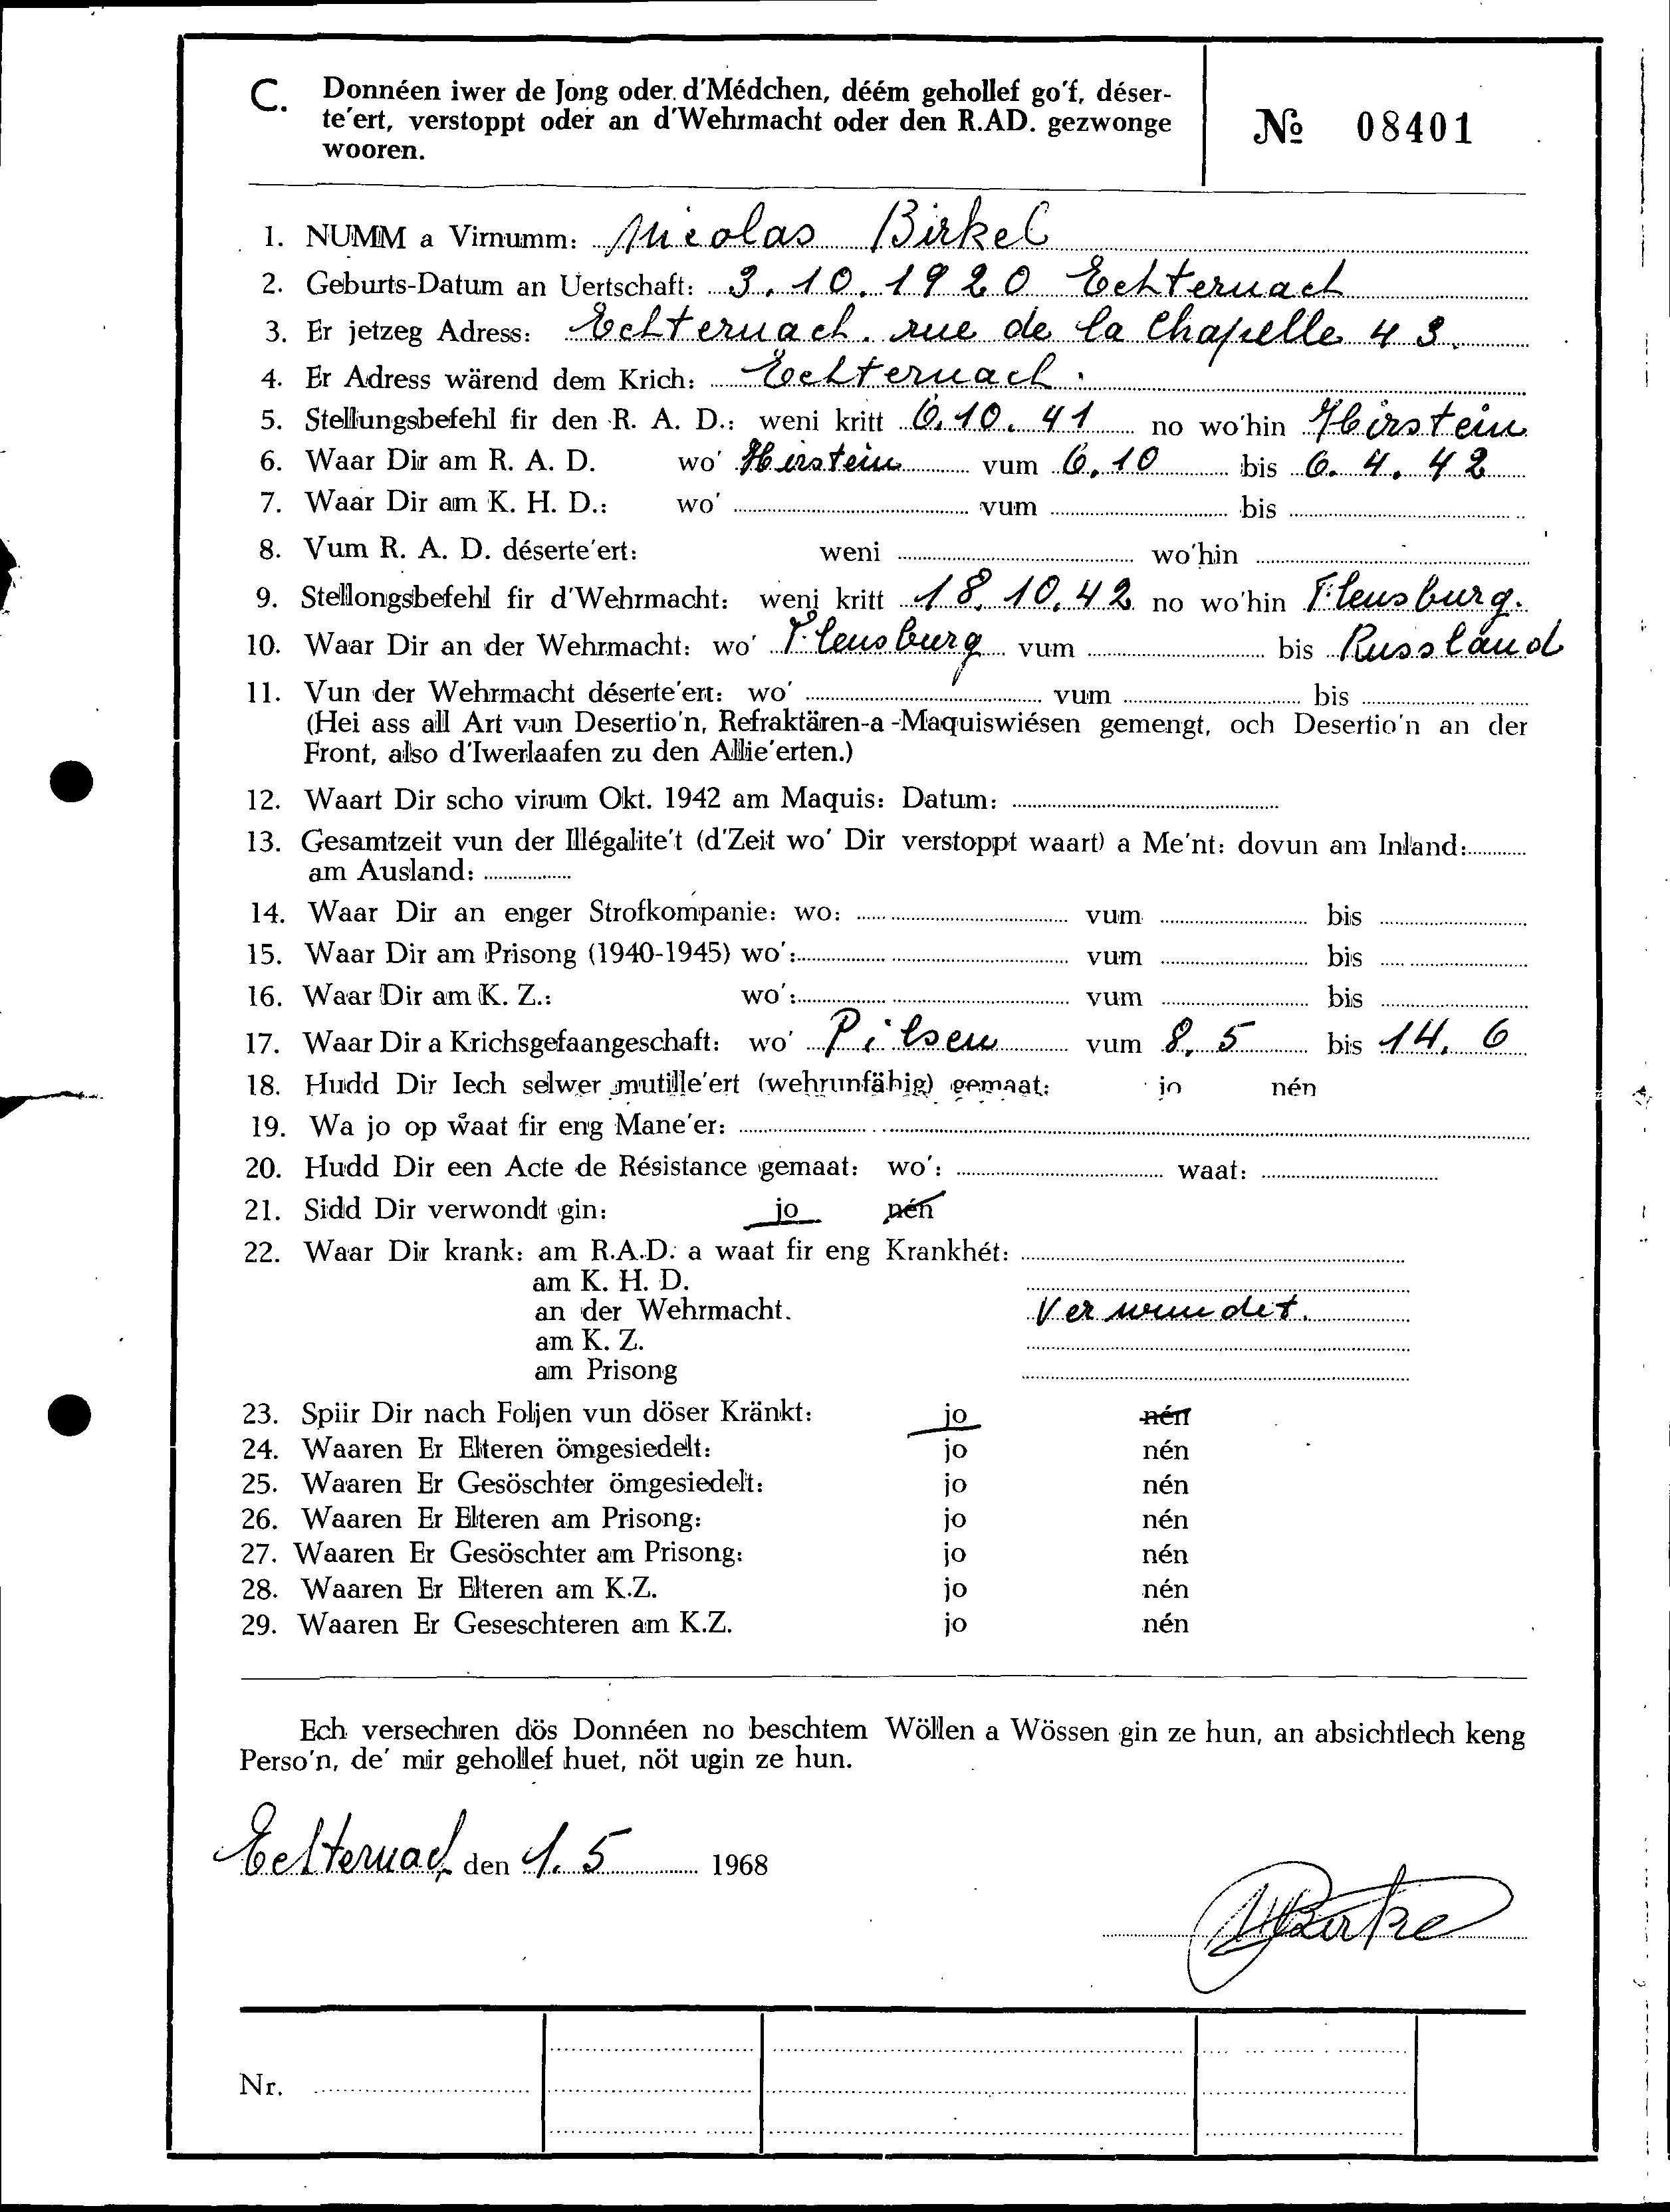 C. Donnéen iwer de Jong oder d'Médchen, déém gehollef go'f, déser-
te'ert, verstoppt oder an d'Wehrmacht oder den R.AD. gezwonge
wooren.
№ 08401
1. NUMM a Virnumm: Nicolas Birkel
2. Geburts-Datum an Uertschaft: 3. 10. 1920 Echternach
3. Er jetzeg Adress: Echternach. rue de la Chapelle 43.
4. Er Adress wärend dem Krich: Echternach.
5. Stellungsbefehl fir den R. A. D.: weni kritt 6.10. 41 no wo'hin Hirstein
6. Waar Dir am R. A. D. wo' Hirstein vum 6.10 bis 6. 4. 42
7. Waar Dir am K. H. D.: wo' vum bis
8. Vum R. A. D. déserte'ert: weni wo'hin
9. Stellongsbefehl fir d'Wehrmacht: weni kritt 18. 10. 42 no wo'hin Flensburg.
10. Waar Dir an der Wehrmacht: wo' Flensburg vum bis Russland
11. Vun der Wehrmacht déserte'ert: wo' vum bis
(Hei ass all Art vun Desertio'n, Refraktären-a -Maquiswiésen gemengt, och Desertio'n an der
Front, also d'Iwerlaafen zu den Allie'erten.)
12. Waart Dir scho virum Okt. 1942 am Maquis: Datum:
13. Gesamtzeit vun der Illégalite't (d'Zeit wo' Dir verstoppt waart) a Me'nt: dovun am Inland:
am Ausland:
14. Waar Dir an enger Strofkompanie: wo: vum bis
15. Waar Dir am Prisong (1940-1945) wo': vum bis
16. Waar Dir am K. Z.: wo': vum bis
17. Waar Dir a Krichsgefaangeschaft: wo' Pilsen vum 8. 5 bis 14. 6
18. Hudd Dir Iech selwer mutille'ert (wehrunfähig) gemaat: jo nén
19. Wa jo op waat fir eng Mane'er:
20. Hudd Dir een Acte de Résistance gemaat: wo': waat:
21. Sidd Dir verwondt gin: jo nén
22. Waar Dir krank: am R.A.D. a waat fir eng Krankhét:
am K. H. D.
an der Wehrmacht. Verwundet.
am K. Z.
am Prisong
23. Spiir Dir nach Foljen vun döser Kränkt: jo nén
24. Waaren Er Elteren ömgesiedelt: jo nén
25. Waaren Er Gesöschter ömgesiedelt: jo nén
26. Waaren Er Elteren am Prisong: jo nén
27. Waaren Er Gesöschter am Prisong: jo nén
28. Waaren Er Elteren am K.Z. jo nén
29. Waaren Er Geseschteren am K.Z. jo nén
Ech versechren dös Donnéen no beschtem Wöllen a Wössen gin ze hun, an absichtlech keng
Perso'n, de' mir gehollef huet, nöt ugin ze hun.
Echternach den 1. 5 1968
NBirkel
Nr.